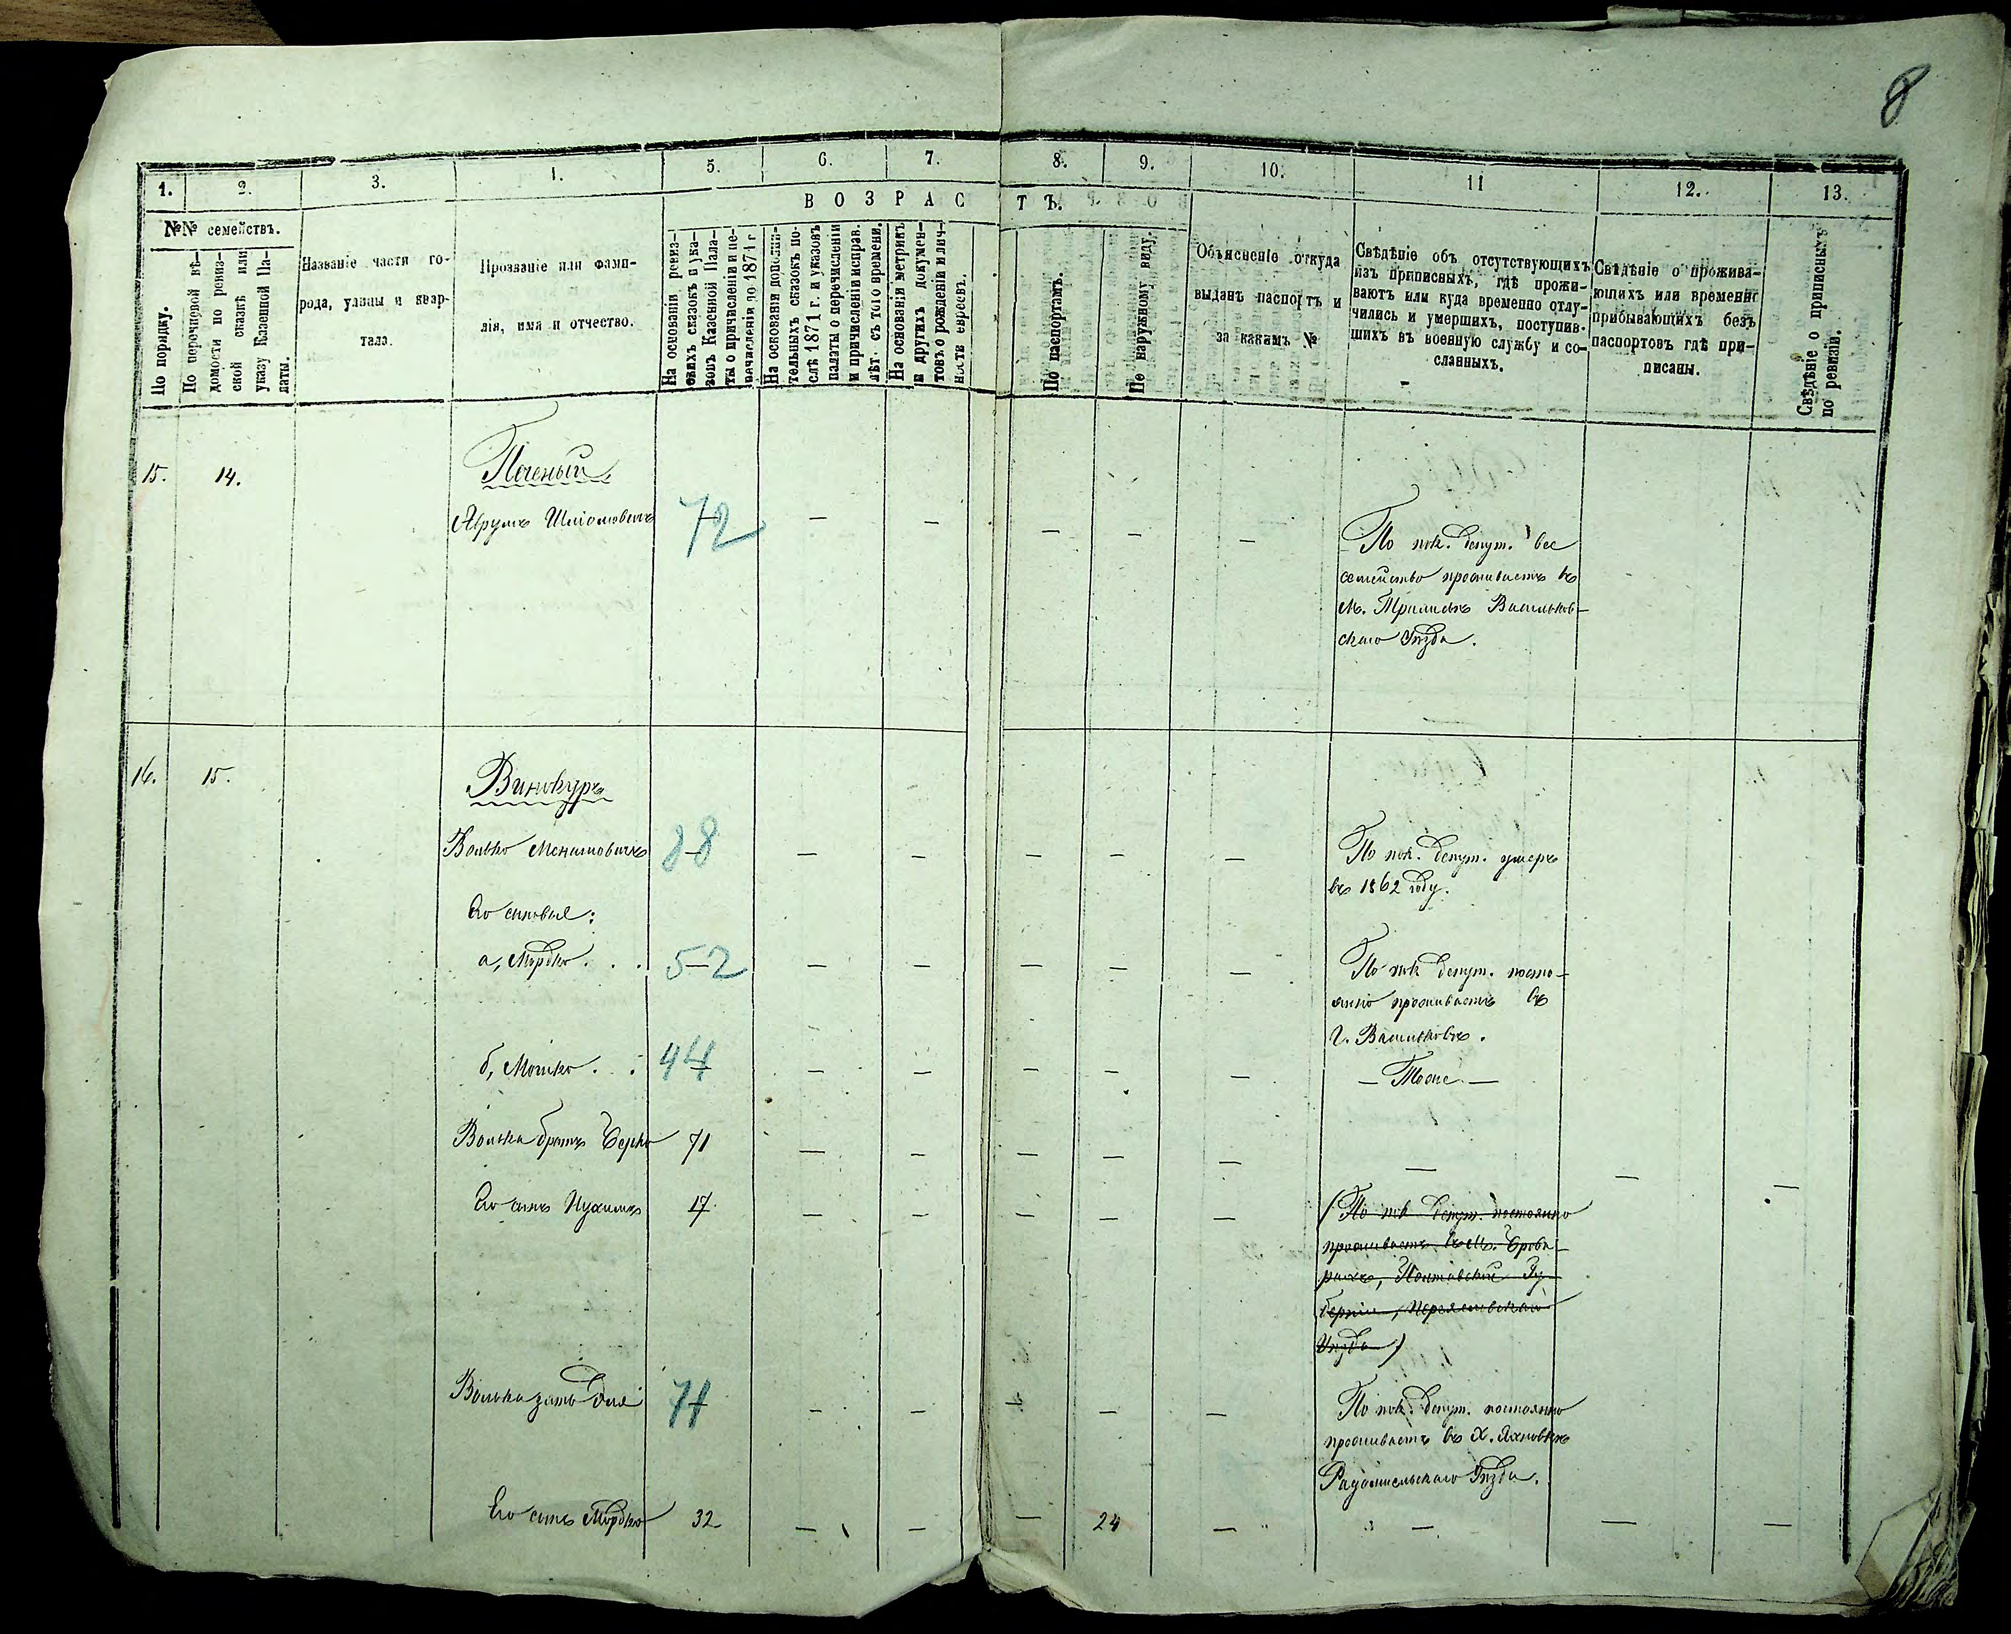 8
1. 2. 3. 4. 5. 6. 7. 8. 9. 10. 11 12. 13.
№№ семействъ.
По порядку.
По перечневой вѣ-
домости по ревиз-
ской сказкѣ или
указу Казенной Па-
латы.
Названіе части го-
рода, улицы и квар-
тала.
Прозваніе или фами-
лія, имя и отчество.
ВОЗРАСТЪ.
На основаніи ревиз-
скихъ сказокъ и ука-
зовъ Казенной Пала-
ты о причисленіи и пе-
речисленіи до 1871 г.
На основаніи дополни-
тельныхъ сказокъ по-
слѣ 1871 г. и указовъ
палаты о перечисленіи
и причисленіи исправ.
лѣт. съ того времени.
На основаніи метрикъ
и другихъ докумен-
товъ о рожденіи и лич-
ности евреевъ.
По паспортамъ.
По наружному виду.
Объясненіе откуда
выданъ паспортъ и
за какимъ №
Свѣдѣніе объ отсутствующихъ
изъ приписныхъ, гдѣ прожи-
ваютъ или куда временно отлу-
чились и умершихъ, поступив-
шихъ въ военную службу и со-
сланныхъ.
Свѣдѣніе о прожива-
ющихъ или временно
прибывающихъ безъ
паспортовъ гдѣ при-
писаны.
Свѣдѣніе о приписныхъ
по ревизіи.
15. 14. Печеный
Аврумъ Шліомовичъ 72 — — — — —
По пок. депут. все
семейство проживаетъ въ
м. Трилисахъ Васильков-
скаго Уѣзда.
16. 15. Винокуръ
Волько Менашовичъ 88 — — — — —
По пок. депут. умеръ
въ 1862 году.
Его сыновья:
а, Мордко . . . 52 — — — — —
По пок депут. посто-
янно проживаетъ въ
г. Васильковѣ.
б, Мошко . . 44 — — — — —
— Тоже —
Волька братъ Берко 71 — — — — — — — —
Его сынъ Нухимъ 17 — — — — —
(По пок депут. постоянно
проживаетъ въ м. Брова-
рахъ, Полтавской Гу-
берніи, Переяславскаго
Уѣзда)
Волька зять Эля 71 — — — — —
По пок. депут. постоянно
проживаетъ въ х. Яхновкѣ
Радомысльскаго Уѣзда.
Его сынъ Мордко 32 — — — 24 — — — —